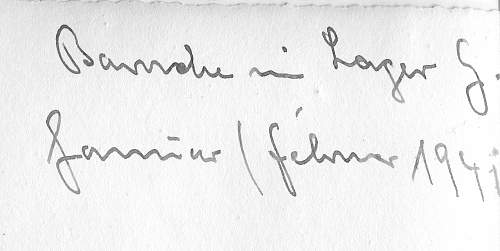 Baracke in Lager G.
Januar / Februar 1941